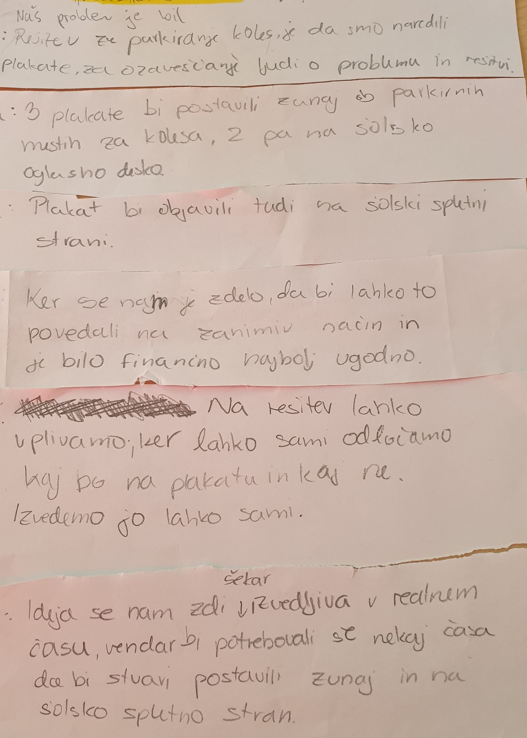 Naš problem je bil
: Rešitev za parkiranje koles, je da smo naredili
plakate, za ozaveščanje ljudi o problemu in rešitvi.
: 3 plakate bi postavili zunaj ob parkirnih
mestih za kolesa, 2 pa na šolsko
oglasno desko.
: Plakat bi objavili tudi na šolski spletni
strani.
Ker se nam je zdelo, da bi lahko to
povedali na zanimiv način in
je bilo finančno najbolj ugodno.
Na rešitev lahko
vplivamo, ker lahko sami odločamo
kaj bo na plakatu in kaj ne.
Izvedemo jo lahko sami.
: Ideja se nam zdi šekar izvedljiva v realnem
času, vendar bi potrebovali še nekaj časa
da bi stvari postavili zunaj in na
šolsko spletno stran.